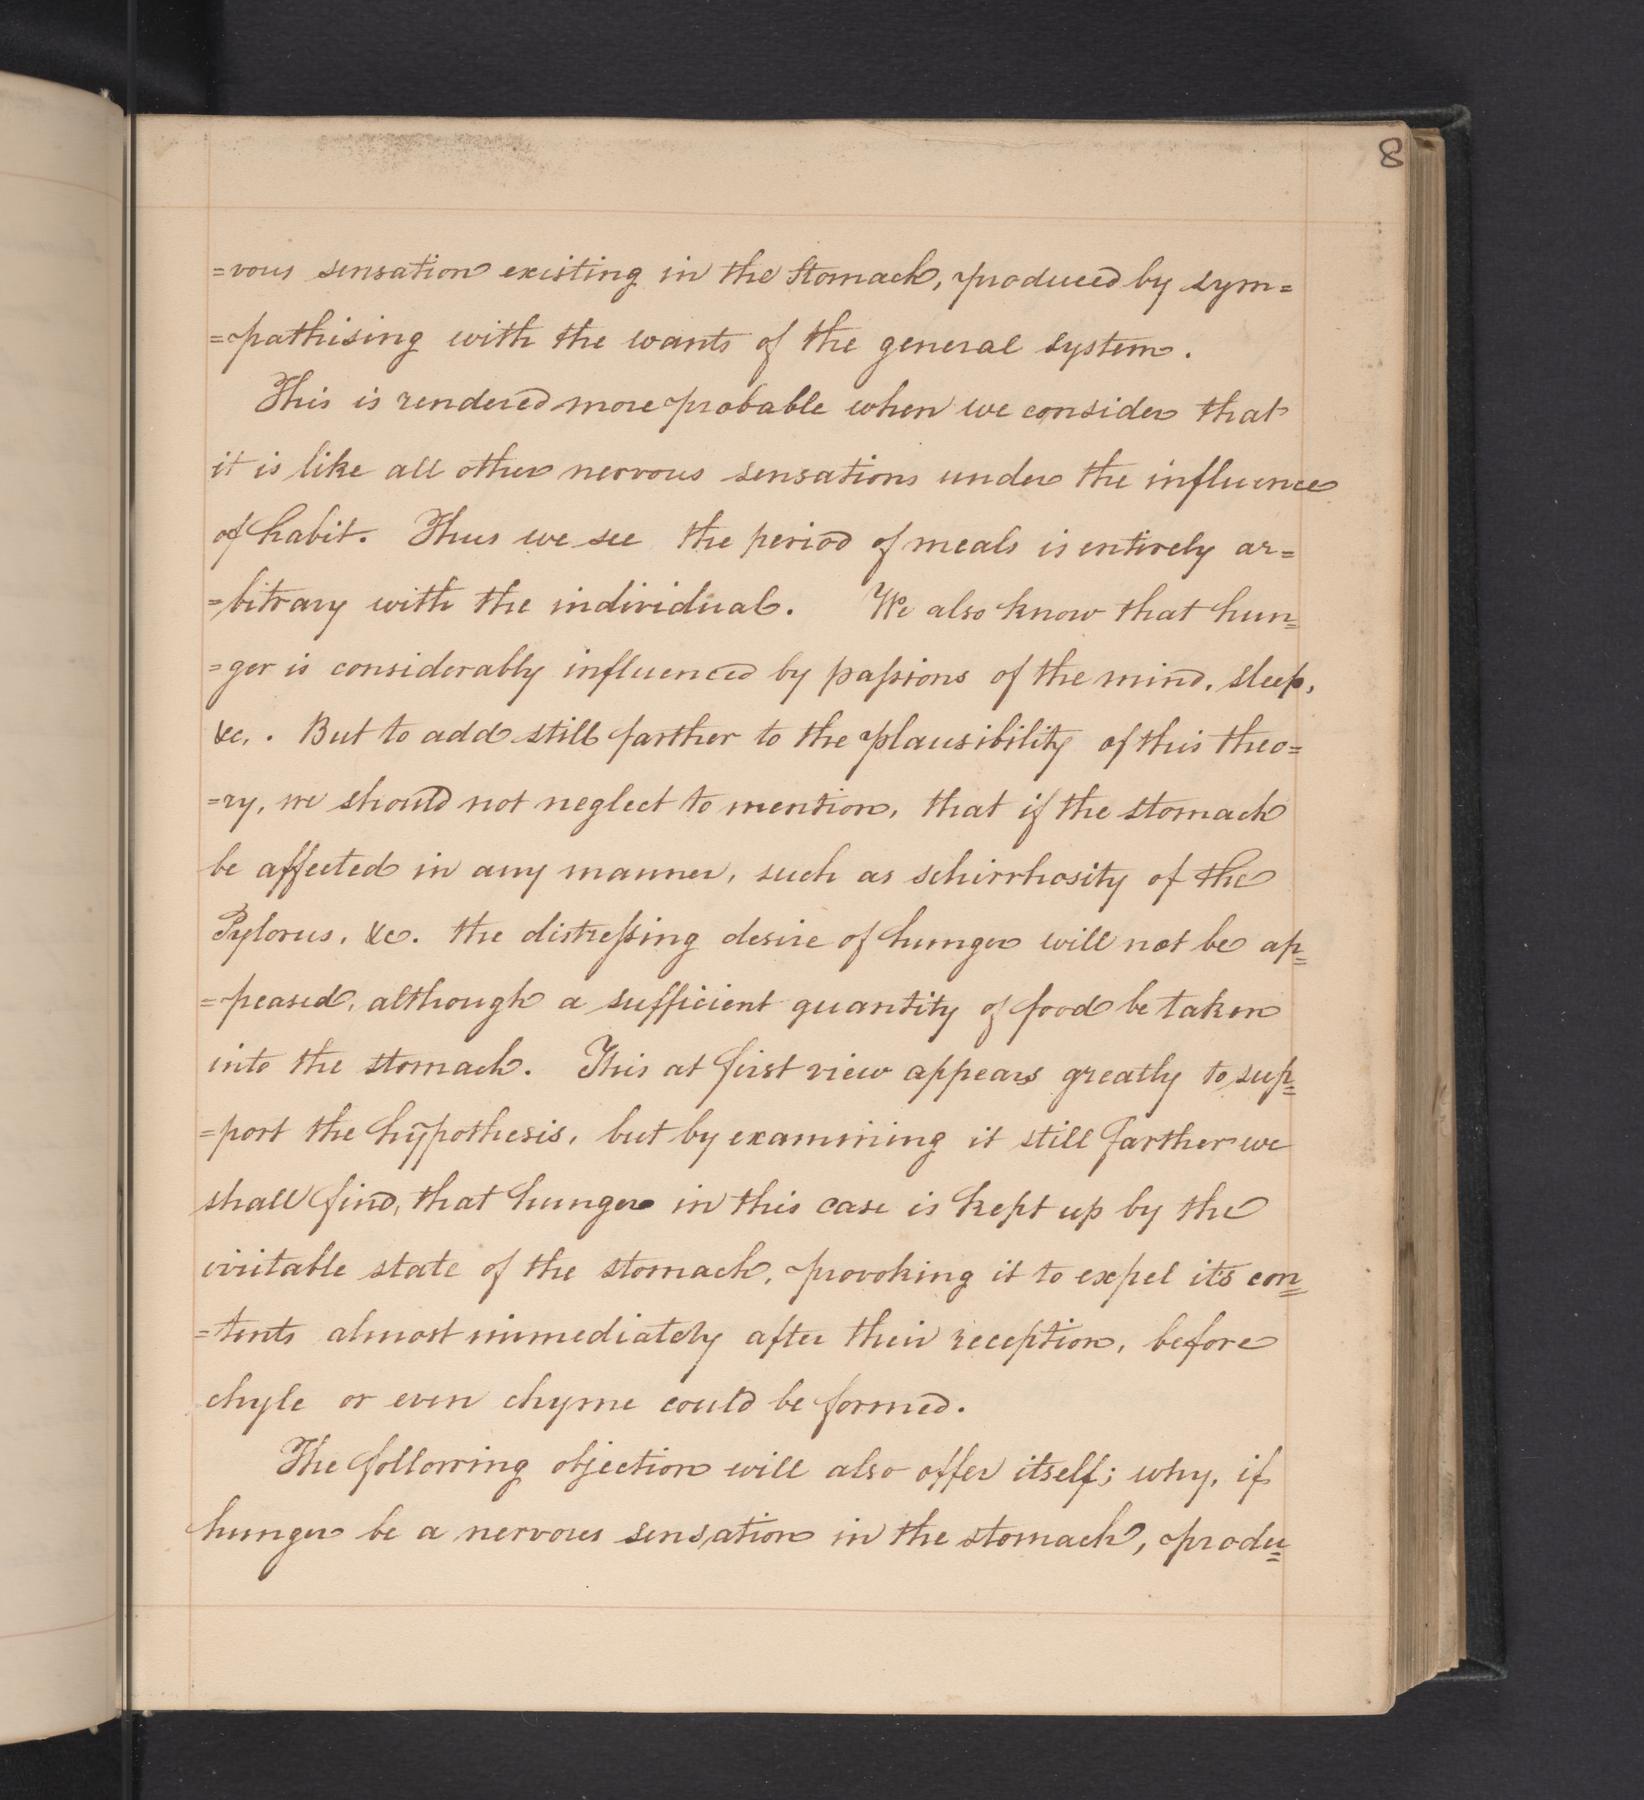 8
=vous sensation existing in the stomach, produced by sym=
=pathising with the wants of the general system.
This is rendered more probable when we consider that
it is like all other nervous sensations under the influence
of habit. Thus we see the period of meals is entirely ar=
=bitrary with the individual. We also know that hun=
=ger is considerably influenced by paſsions of the mind, sleep,
&c,. But to add still farther to the plausibility of this theo=
=ry, we should not neglect to mention, that if the stomach
be affected in any manner, such as schirrhosity of the
Pylorus, &c. the distreſsing desire of hunger will not be ap=
=peased, although a sufficient quantity of food be taken
into the stomach. This at first view appears greatly to sup=
=port the hypothesis, but by examining it still farther we
shall find, that hunger in this case is kept up by the
irritable state of the stomach, provoking it to expel its con=
=tents almost immediately after their reception, before
chyle or even chyme could be formed.
The following objection will also offer itself; why, if
hunger be a nervous sensation in the stomach, produ=